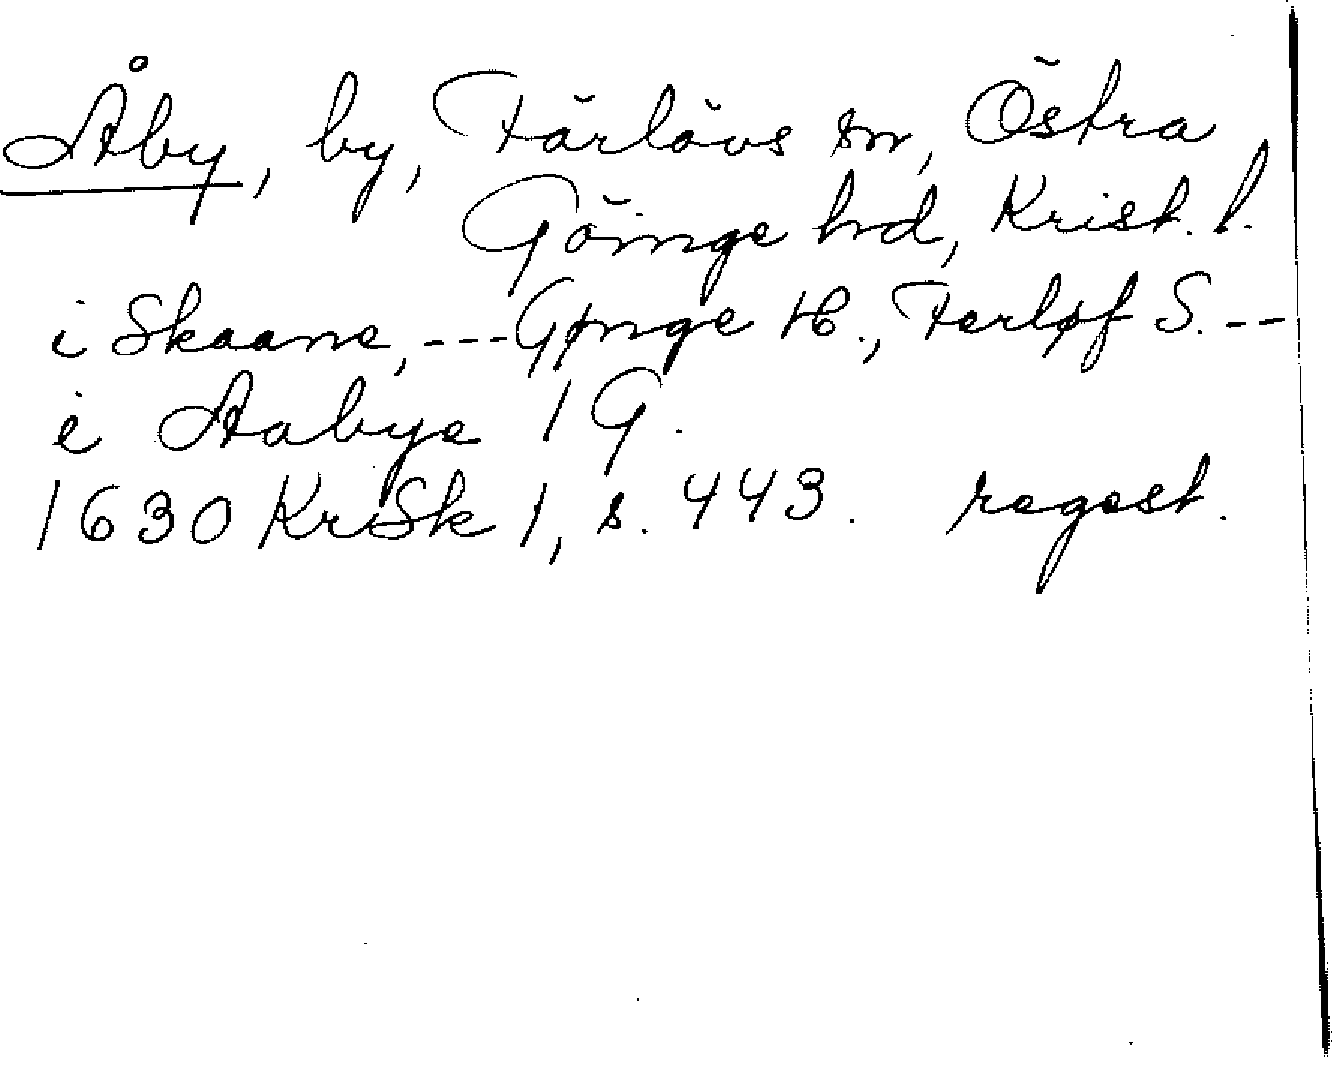 Åby, by, Färlövs sn, Östra
Göinge hd, Krist. l.
i Skaane, --- Gønge H., Ferløf S. --
i Aabye 1 G.
1630 KrSk 1, s. 443. regest.